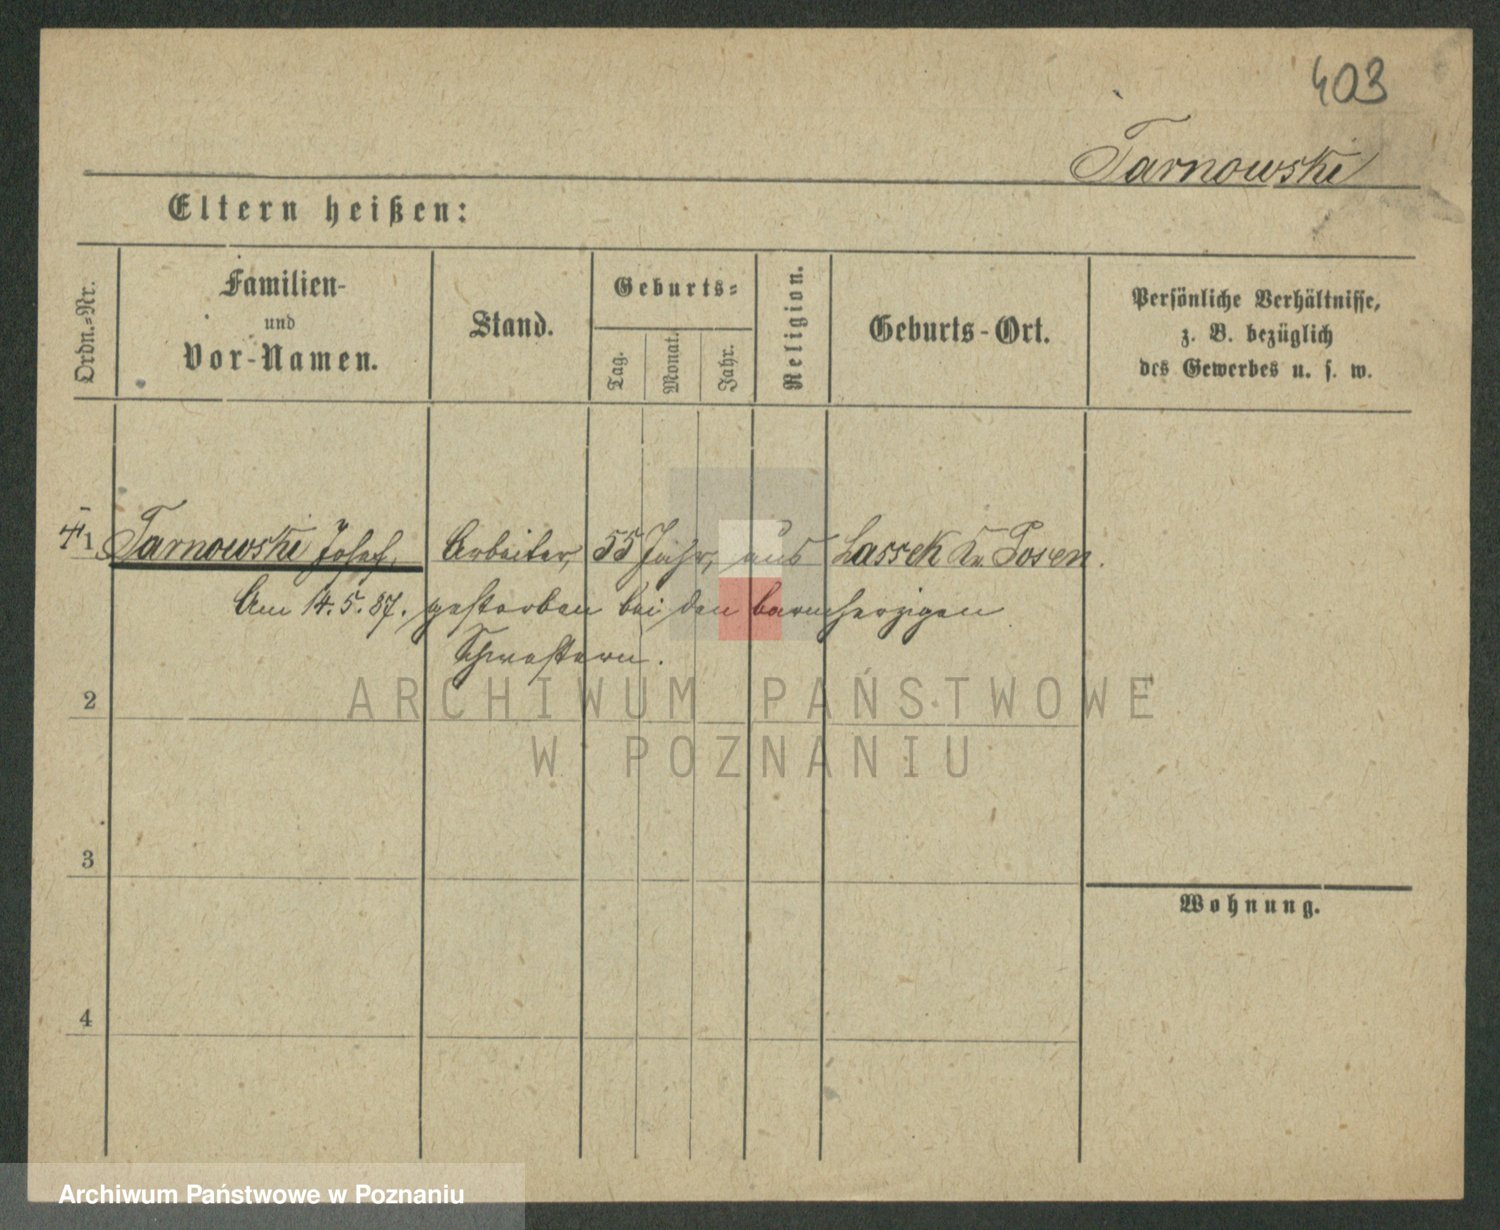 403
Tarnowski
Eltern heißen:
Ordn.-Nr.
Familien-
und
Vor-Namen.
Stand.
Geburts-
Tag.
Monat.
Jahr.
Religion.
Geburts-Ort.
Persönliche Verhältnisse,
z. B. bezüglich
des Gewerbes u. s. w.
1 Tarnowski Josef, Arbeiter, 55 Jahr, aus Lassek Kr. Posen.
Am 14.5.87. gestorben bei den barmherzigen
Schwestern.
2
3
4
Wohnung.
ARCHIWUM PAŃSTWOWE
W POZNANIU
Archiwum Państwowe w Poznaniu